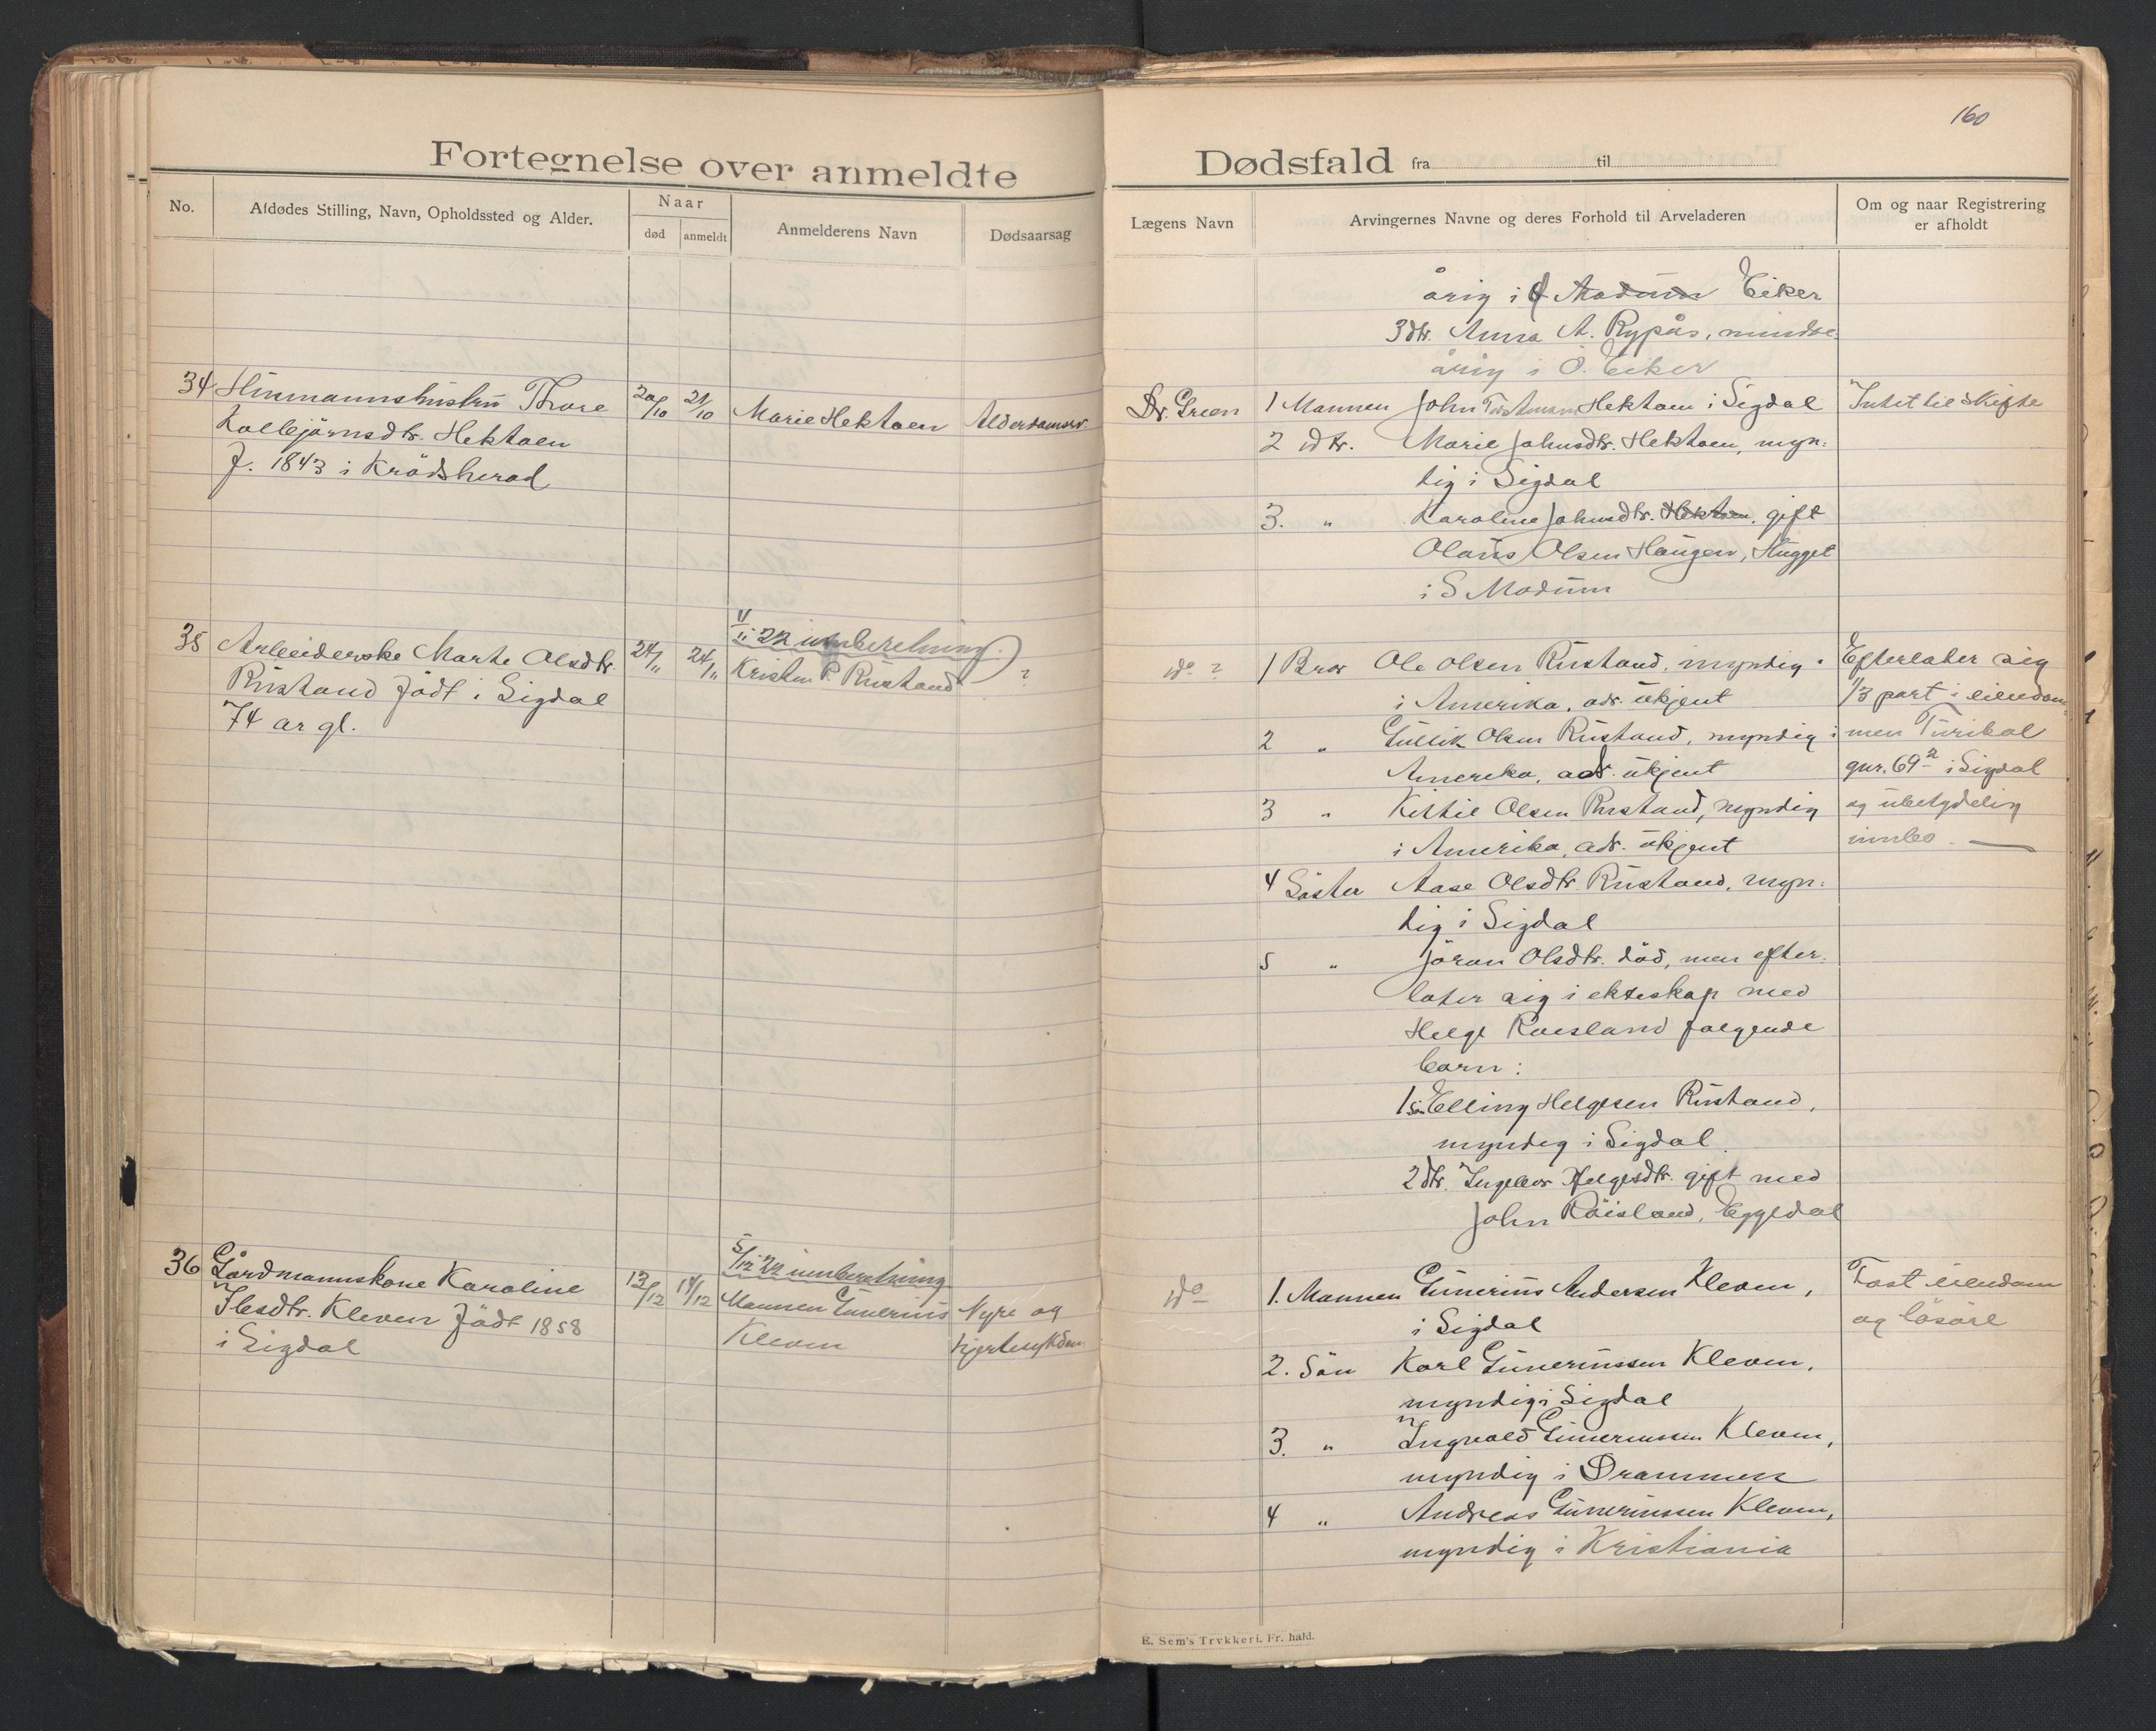 160
Fortegnelse over anmeldte Dødsfald fra til
No.
Afdødes Stilling, Navn, Opholdssted og Alder.
Naar
død
anmeldt
Anmelderens Navn
Dødsaarsag
Lægens Navn
Arvingernes Navne og deres Forhold til Arveladeren
Om og naar Registrering
er afholdt
årig i Modum Eiker
3 dtr. Anna A. Rypås, mindre-
årig i Ö. Eiker
34 Husmannshustru Thore
Kolbjörnsdtr. Hektoen
f. 1843 i Krödsherad
20/10 21/10 Marie Hektoen Alderdomssv.
Dr. Green
1 Mannen John Hektoen i Sigdal
2 dtr. Marie Johnsdtr. Hektoen, myn-
dig i Sigdal
3. " Karoline Johnsdtr. Hektoen, gift
Olaus Olsen Haugen, Hugget
i S Modum
Intet til skifte
35 Arbeiderske Marte Olsdtr.
Rustand födt i Sigdal
74 ar gl.
24/11 24/11
4/11 22 innberetning.
Kristen P. Rustand ?
do ?
1 Bror Ole Olsen Rustand, myndig
i Amerika, adr. ukjent
2 " Gullik Olsen Rustand, myndig i
Amerika, adr. ukjent
3 " Kittil Olsen Rustand, myndig
i Amerika, adr. ukjent
4 Söster Aase Olsdtr. Rustand, myn-
dig i Sigdal
5 " Jöran Olsdtr. död, men efter-
later sig i ekteskap med
Helge Roesland fölgende
barn:
1 sön Elling Helgesen Rustand,
myndig i Sigdal.
2 dtr. Ingebor Helgesdtr. gift med
John Röisland, Eggedal
Efterlater sig
1/3 part i eiendom-
men Turibal
gnr. 69 2 i Sigdal
og ubetydelig
innbo
36 Gårdmannskone Karoline
Ilesdtr. Kleven födt 1858
i Sigdal
13/12 14/12
5/12 22 innberetning
Mannen Gunerius
Kleven
Nyre og
hjertesykdom
do
1. Mannen Gunerius Andersen Kleven,
i Sigdal
2. Sön Karl Guneriussen Kleven,
myndig i Sigdal
3. " Ingvald Guneriussen Kleven,
myndig i Drammen
4 " Andreas Guneriussen Kleven,
myndig i Kristiania
Fast eiendom
og lösöre
E. Sem's Trykkeri. Fr. hald.